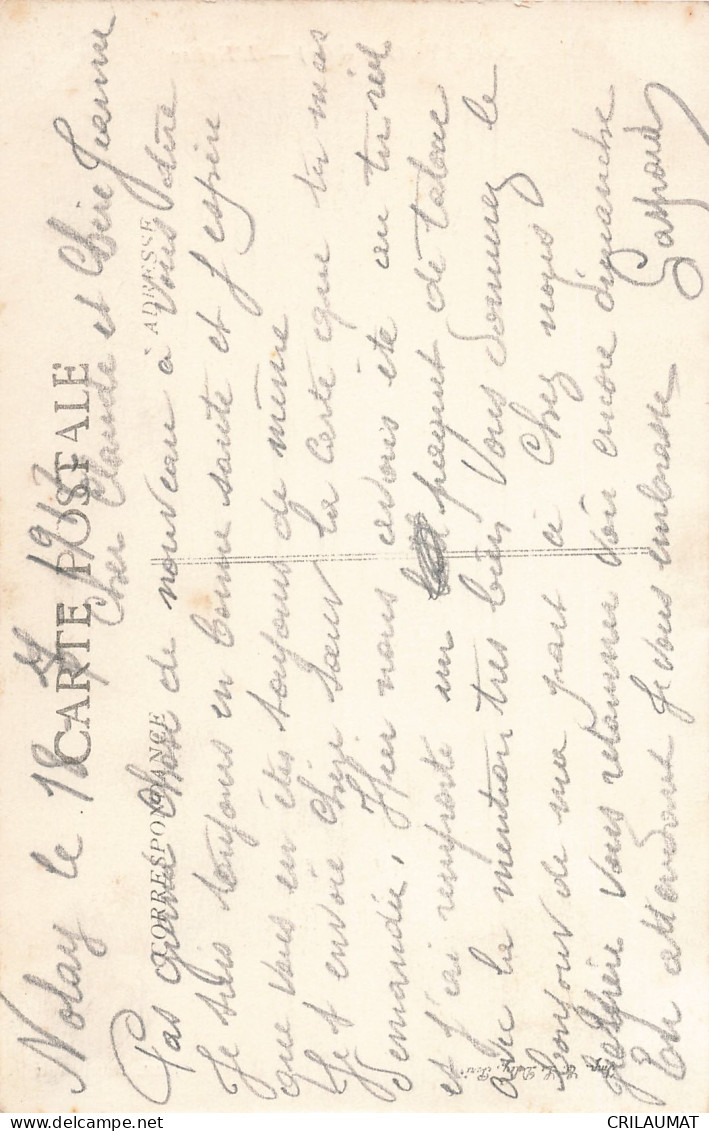 CARTE POSTALE
CORRESPONDANCE
ADRESSE
Nolay le 18 1917
Cher Claude et Chère Jeanne
Pas Grande Chose de nouveau a vous dire
Je suis toujours en bonne santé et j espère
que vous en êtes toujours de même
Je t envoie Chère Sœur la Carte que tu mas
Demandée, Hier nous avons été au tir
et j'ai remporté un paquet de tabac
avec la mention très bien Vous Donnerez le
bonjour de ma part a Chez nous
Jespère vous retourner voir encore dimanche
En attendant Je vous embrasse
Gaspard
CRILAUMAT